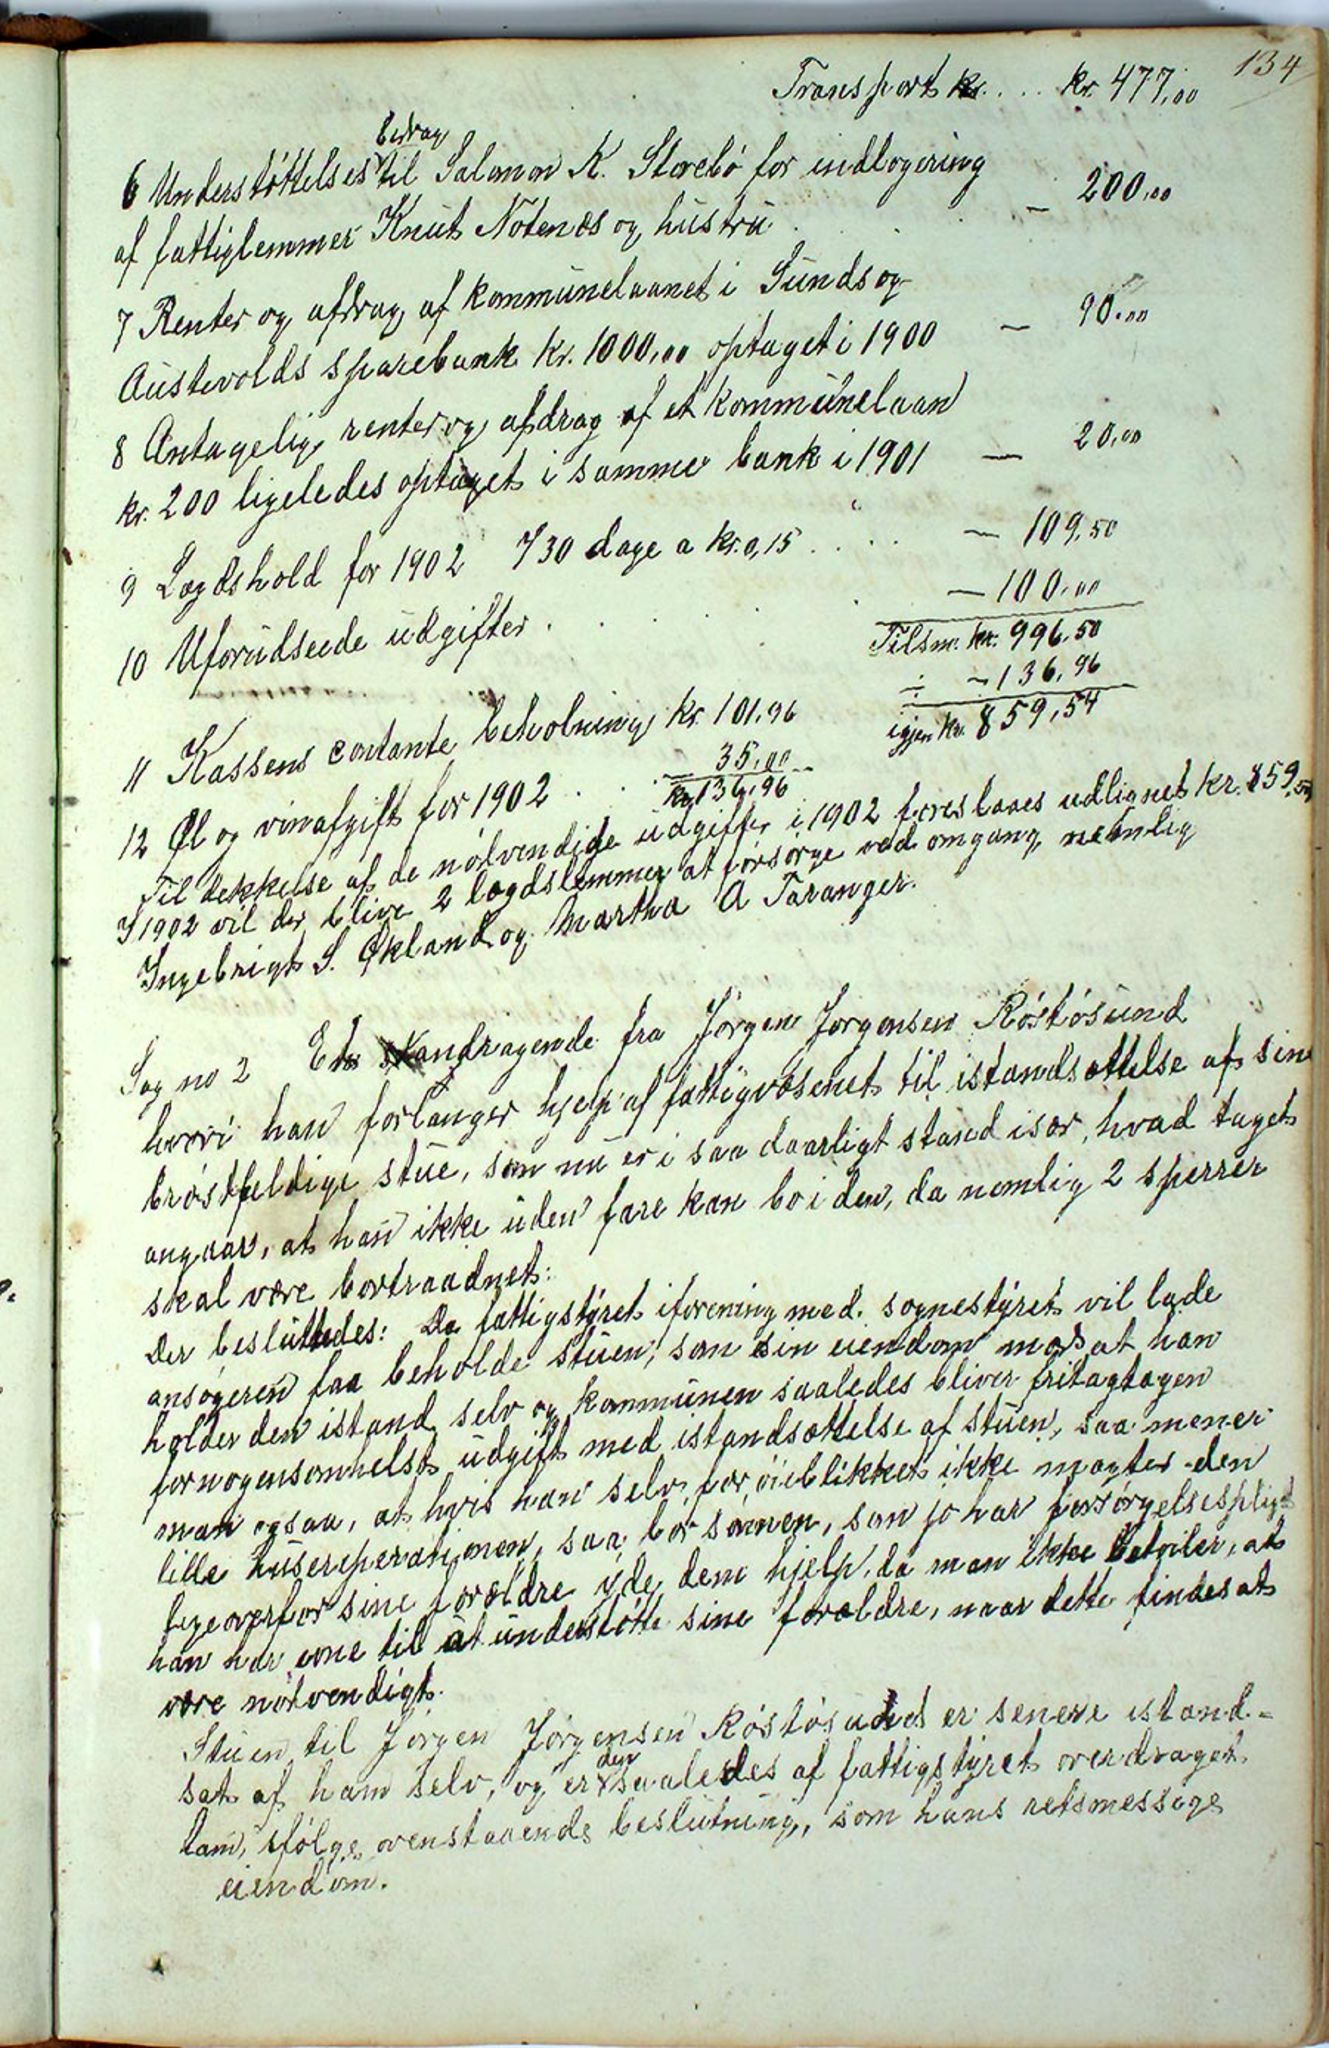 134
Transport kr. . . . kr. 477,00
bidrag
6 Understøttelses til Salamon K. Storebø for indlogering
af fattiglemmer Knut Nótenæs og hustru . . . — 200,00
7 Renter og afdrag af kommunelaanet i Sunds og
Austevolds sparebank kr. 1000,00 optaget i 1900 — 90,00
8 Antagelig renter og afdrag af et kommunelaan
kr. 200 ligeledes optaget i samme bank i 1901 — 20,00
9 Lægdshold for 1902 730 dage a kr. 0,15 . . . . — 109,50
10 Uforudseede udgifter . . . . . — 100,00
Tilsm. kr. 996,50
÷ — 136,96
11 Kassens contante beholning kr. 101,96 igjen kr. 859,54
12 Øl og vinafgift for 1902 . . . — 35,00
kr. 136,96
Til dekkelse af de nødvendige udgifter i 1902 foreslaaes udlignet kr. 859,54
I 1902 vil der blive 2 lægdslemmer at forsørge ved omgang nemlig
Ingebrigt S. Økland og Martha A Taranger.
Sag no 2 Et andragende fra Jørgen Jørgensen Róstósund
hvori han forlanger hjelp af fattigvæsenet til istandsættelse af sin
brøstfeldige stue, som nu er i saa daarligt stand især, hvad taget
angaar, at han ikke uden fare kan bo i den, da nemlig 2 sperrer
skal være bortraadnet:
Der besluttedes: Da fattigstyret iforening med sognestyret vil lade
ansøgeren faa beholde stuen, som sin eiendom mod at han
holder den istand selv og kommunen saaledes bliver fritagtagen
for nogensomhelst udgift med istandsættelse af stuen, saa mener
man ogsaa, at hvis han selv for øieblikket ikke magter den
lille husereperationen, saa bør sønnen, som jo har forsørgelsespligt
ligeoverfor sine forældre yde dem hjelp, da man ikke betviler, at
han har evne til at understøtte sine forældre, naar dette findes at
være nødvendigt.
Stuen til Jørgen Jørgensen Róstósund er senere istand-
sat af ham selv, og er den saaledes af fattigstyret overdraget
ham, ifølge ovenstaaende beslutning, som hans retsmessige
eiendom.